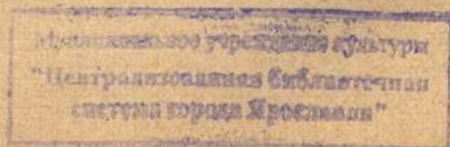 Муниципальное учреждение культуры
"Централизованная библиотечная
система города Ярославля"